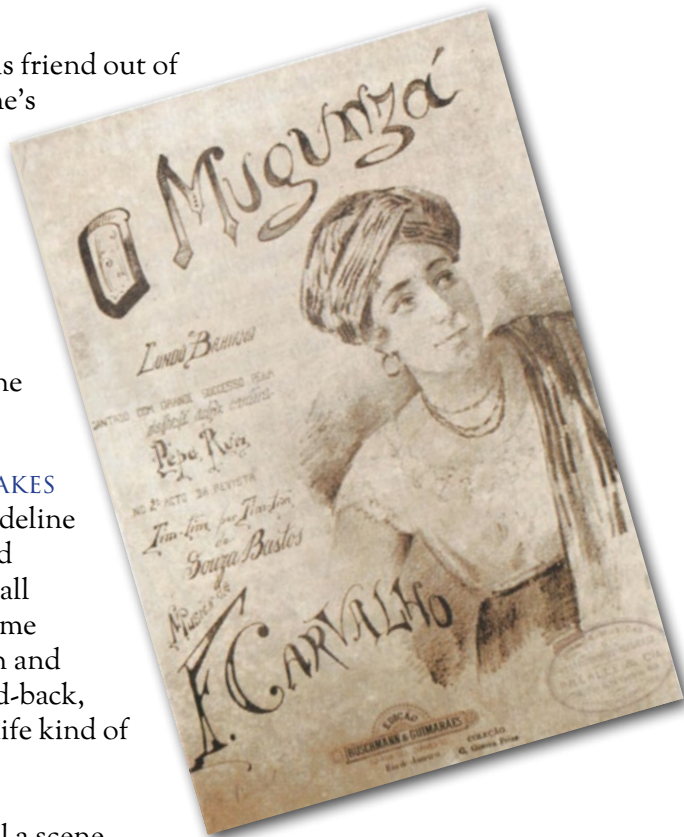 s friend out of
ne's
ne
AKES
deline
d
all
me
n and
d-back,
life kind of
d a scene
O Mugunzá
Lundú Brahiano
CANTADO COM GRANDE SUCCESSO PELA
Pepa Ruiz
NO 2º ACTO DA REVISTA
Tim-tim por Tim-tim
de
Souza Bastos
Musica de
F. CARVALHO
EDIÇÃO
BUSCHMANN & GUIMARÃES
Rio de Janeiro
COLEÇÃO